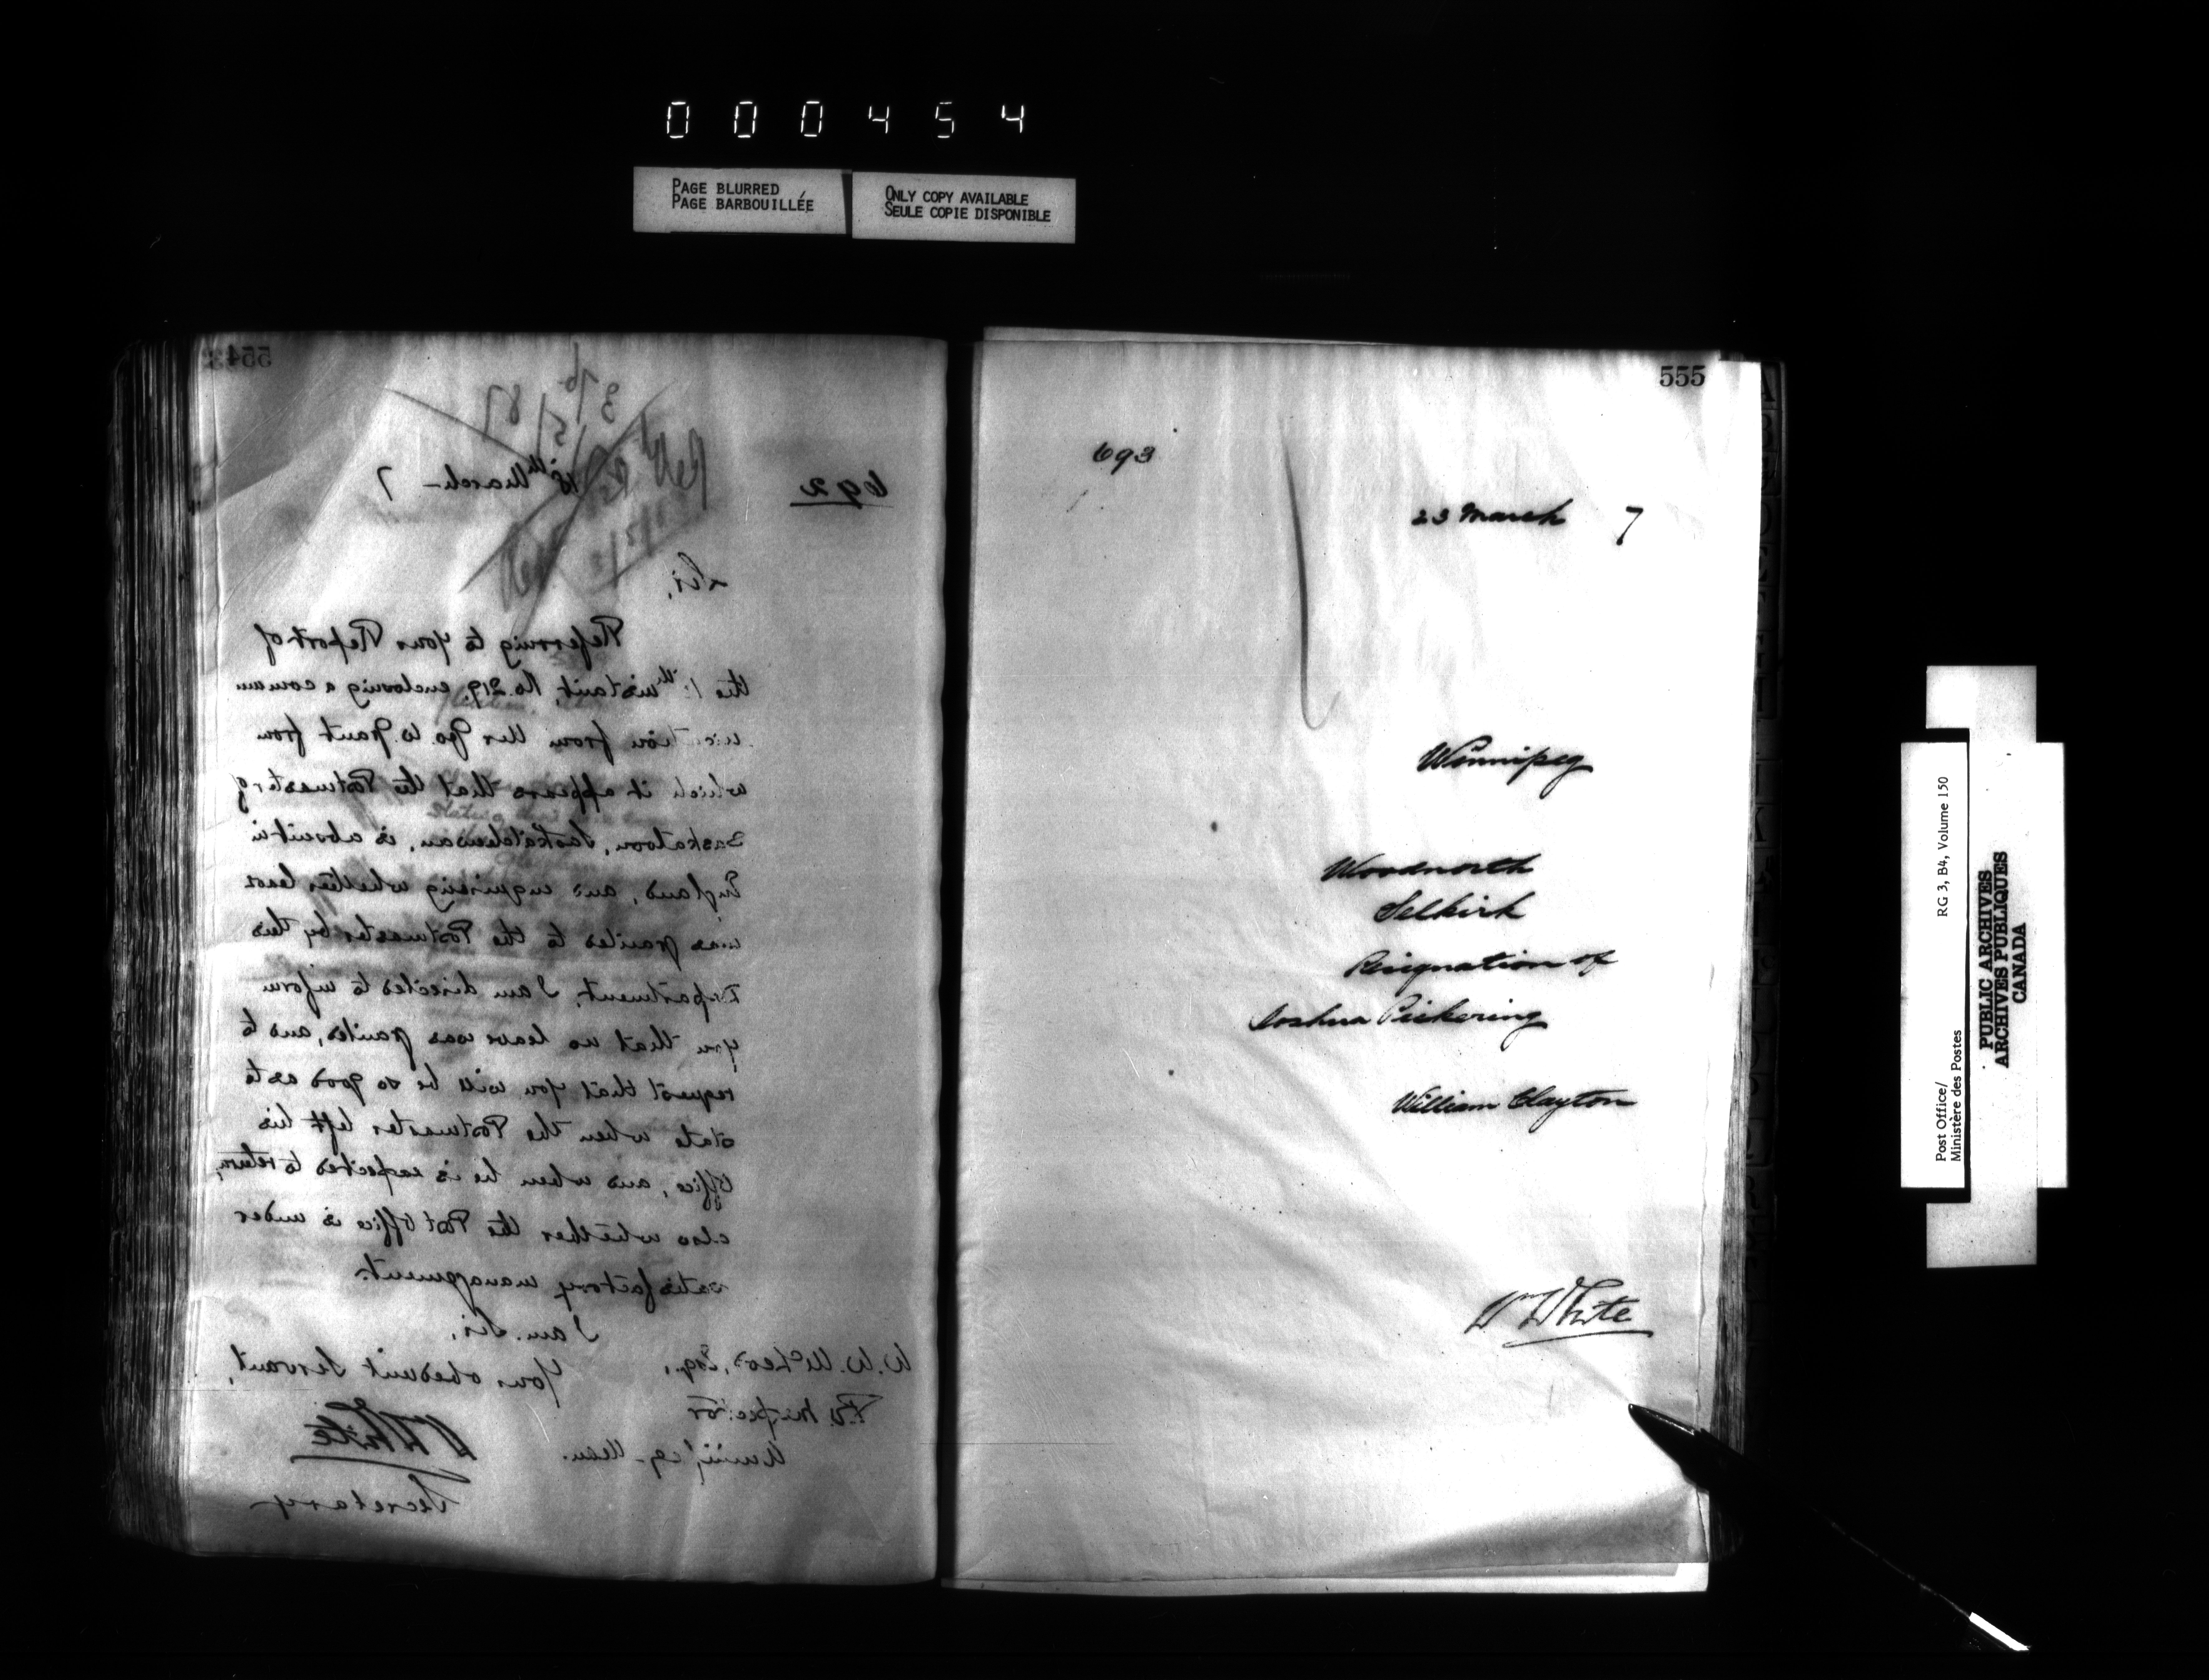 000454
PAGE BLURRED
PAGE BARBOUILLÉE
ONLY COPY AVAILABLE
SEULE COPIE DISPONIBLE
554
692
18th March 7
Sir,
Referring to your Report of
the instant, No. 219, enclosing a commu
nication from Geo. W. Grant from
which it appears that the Postmaster of
Saskatoon, Saskatchewan, is absent in
England, and enquiring whether leave
was granted to the Postmaster by this
Department, I am directed to inform
you that no leave was granted, and to
request that you will be so good as to
state when the Postmaster left his
Office, and when he is expected to return,
also whether the Post Office is under
satisfactory management.
I am, Sir,
Your obedient Servant,
W. W. McLeod, Esq.,
P.O. Inspector
Winnipeg - Man.
Wm White
Secretary
555
693
23 March 7
Winnipeg
Woodnorth
Selkirk
Resignation of
Joshua Pickering
William Clayton
Wm White
Post Office/
Ministère des Postes
RG 3, B4, Volume 150
PUBLIC ARCHIVES
ARCHIVES PUBLIQUES
CANADA